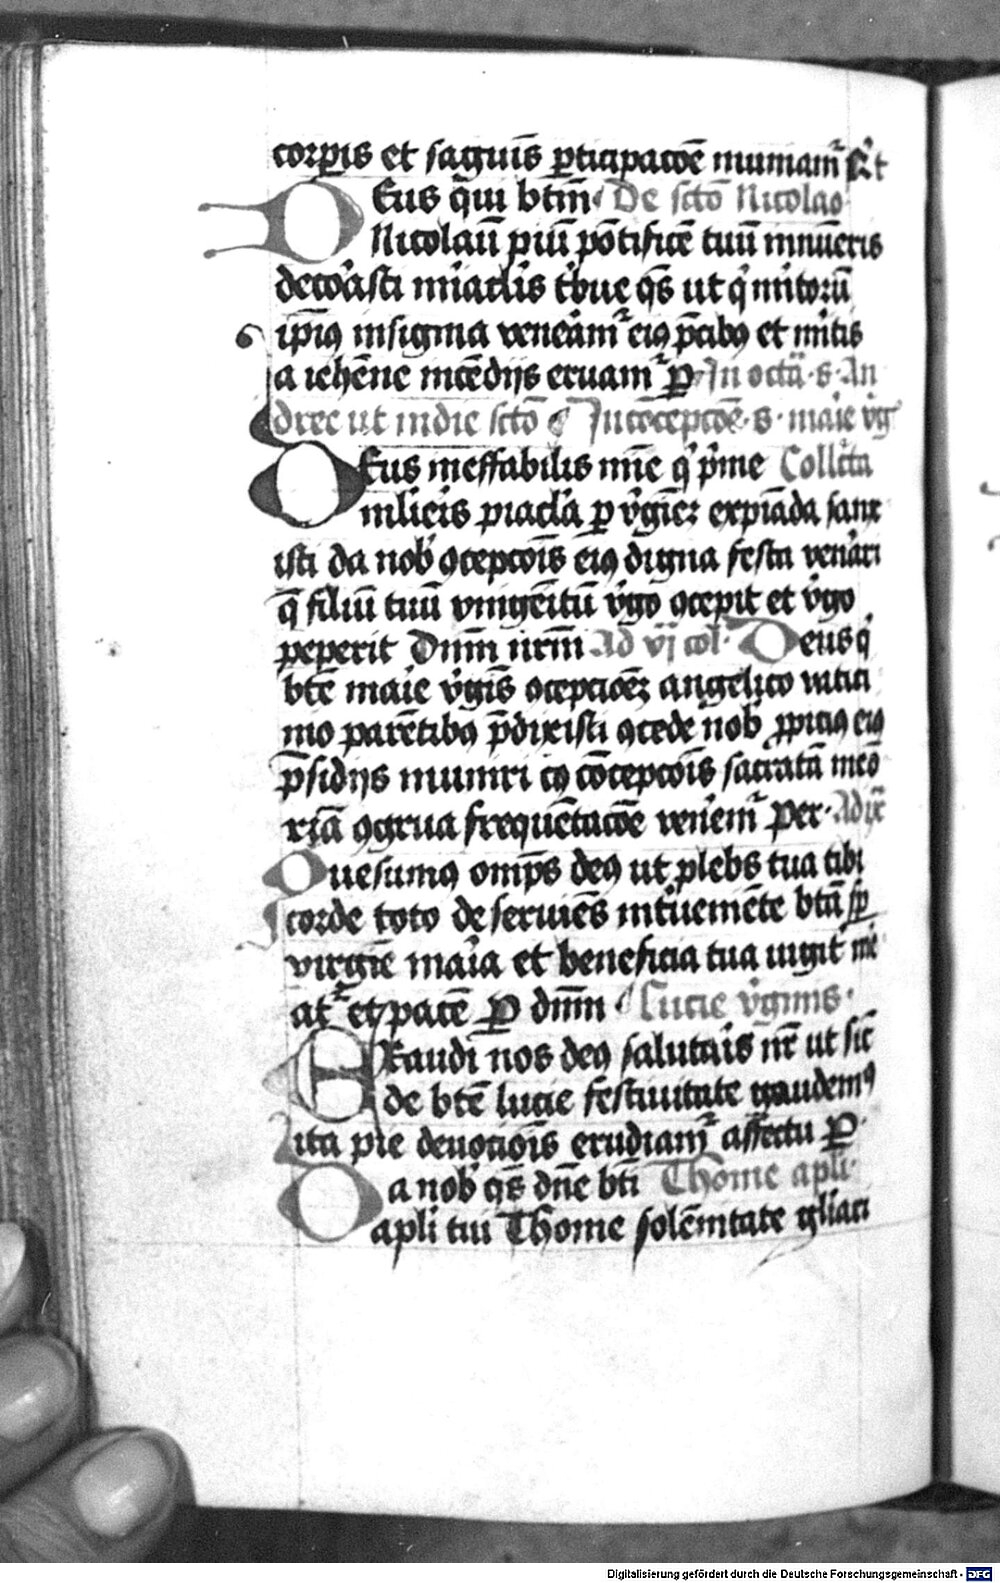 corpis et saguīs pticipacoē muniamͬ Et
Deus qui btm̄ De sctō Nicolao
Nicolaū piū pōtificē tuū innūeris
decoasti miaclis tbue qs̄ ut qͥ mitorū
ipiꝰ insignia veneamͬ eiꝰ pcibꝫ et mitis
a iehēne incēdijs eruamͬ p In octā s An
dree ut in die sctō In cōcepcōe s maie vg
Deus ineffabilis mie qͥ pͥme Collcta
mlieis piacla p vͥgiēꝫ expiāda sanx
isti da nob ꝯcepcoīs eiꝰ digna festa venāri
q̄ filiū tuū vnigēitū vͥgo ꝯcepit et vͥgo
peperit Dnm̄ nrm̄ Ad vj col Deus qͥ
btē maie vͥgīs ꝯcepcioēꝫ angelico vatici
nio parētibꝫ pdixisti ꝯcede nob ppiciꝰ eiꝰ
psidijs muniri cꝰ cōcepcoīs sacratā meō
riā ꝯgrua frequētacoē veneͥmͬ Per Ad ix
Quesumꝰ omps̄ deꝰ ut plebs tua tibi
corde toto deseruiēs mͥtuemēte btā sp
virginē maia et beneficia tua iugit me
atͬ et pacē P dnm̄ Lucie vͥginis
Exaudi nos deꝰ salutaīs nr̄ ut sic̄
de btē lucie festiuitate gaudemꝰ
ita pie deuocoīs erudiamͬ affectu P
Da nob qs̄ dn̄e bti Thome apli
apli tui Thome solēnitate gliari
Digitalisierung gefördert durch die Deutsche Forschungsgemeinschaft - DFG